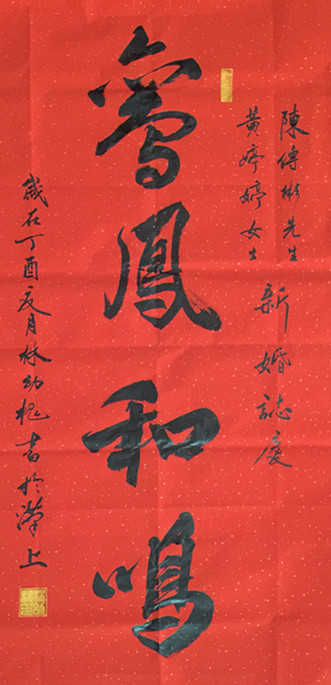 陳傳彬先生
黃婷婷女士
新婚誌慶
鸞鳳和鳴
歲在丁酉夏月林幼杞書於上